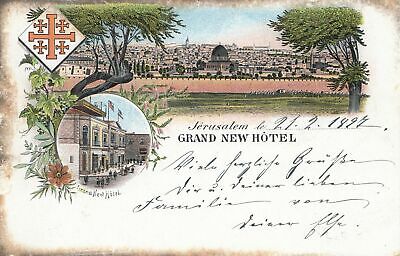 Jérusalem le 21. 2. 1897
GRAND NEW HÔTEL
Grand New Hôtel
Viele herzliche Grüße
Dir u. deiner lieben
Familie von
deiner Else.